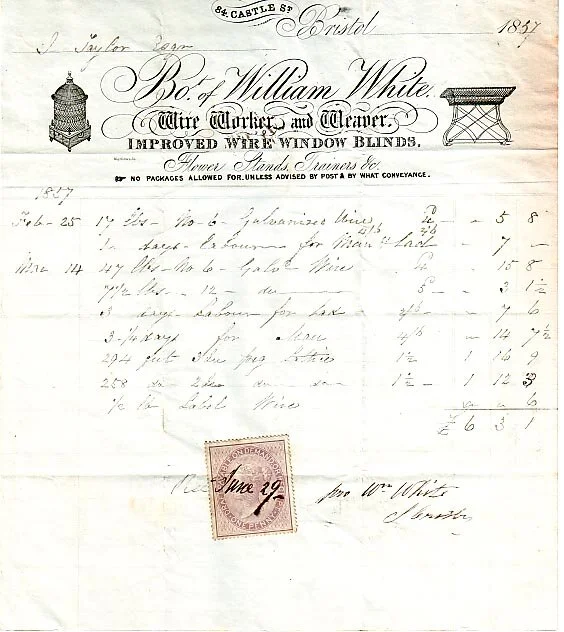 84. CASTLE ST
Bristol 1857
J Taylor Esqr
Bo.t of William White.
Wire Worker, and Weaver.
IMPROVED WIRE WINDOW BLINDS,
Flower Stands, Trainers &c.
NO PACKAGES ALLOWED FOR, UNLESS ADVISED BY POST & BY WHAT CONVEYANCE.
1857
Feb - 25 17 lbs - No - 6 - Galvanized Wire 4d - - 5 8
days - Labour for Man & Lad - 7 -
14 47 lbs - No 6 - Galvd Wire 4 - 15 8
7 1/2 lbs - 12 - do 5d - 3 1 1/2
3 days Labour for Lad 2/6 - 7 6
3 - 1/4 days for Man 4/6 - 14 7 1/2
294 1 1/2 - 1 16 9
258 do do 1 1/2 - 1 12 3
1/2 lb Label Wire 6
£ 6 3 1
June 29 pro Wm White
ON DEMAND
ONE PENNY